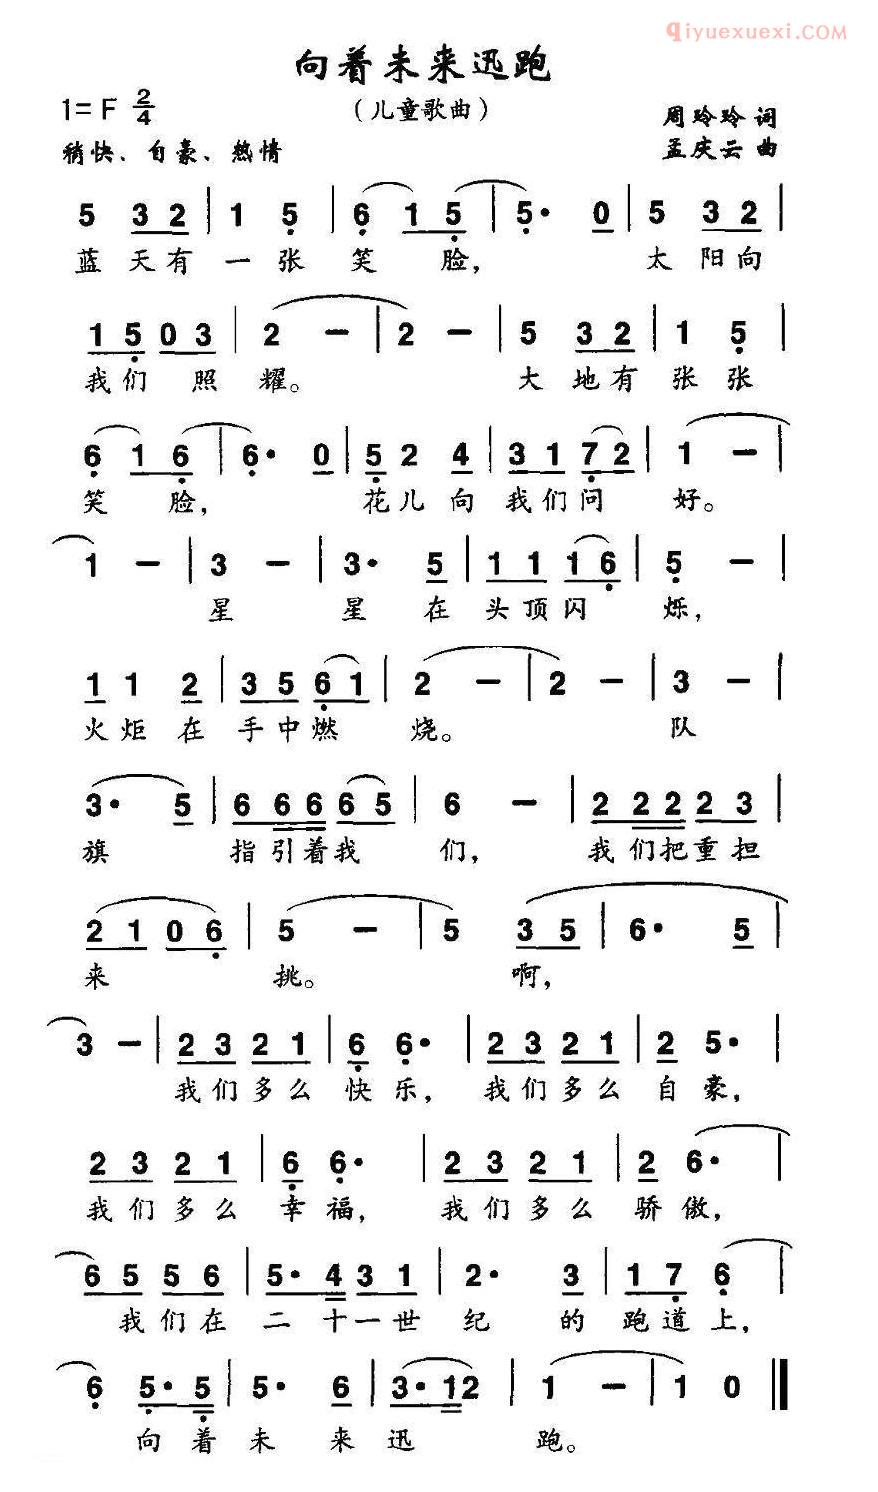 qiyuexuexi.COM
向着未来迅跑
1= F 2/4
（儿童歌曲）
周玲玲 词
稍快、自豪、热情
孟庆云 曲
5 3 2 | 1 5 | 6 1 5 | 5· 0 | 5 3 2 |
蓝 天 有 一 张 笑 脸， 太 阳 向
1 5 0 3 | 2 － | 2 － | 5 3 2 | 1 5 |
我 们 照 耀。 大 地 有 张 张
6 1 6 | 6· 0 | 5 2 4 | 3 1 7 2 | 1 － |
笑 脸， 花 儿 向 我 们 问 好。
1 － | 3 － | 3· 5 | 1 1 1 6 | 5 － |
星 星 在 头 顶 闪 烁，
1 1 2 | 3 5 6 1 | 2 － | 2 － | 3 － |
火 炬 在 手 中 燃 烧。 队
3· 5 | 6 6 6 6 5 | 6 － | 2 2 2 2 3 |
旗 指 引 着 我 们， 我 们 把 重 担
2 1 0 6 | 5 － | 5 3 5 | 6· 5 |
来 挑。 啊，
3 － | 2 3 2 1 | 6 6· | 2 3 2 1 | 2 5· |
我 们 多 么 快 乐， 我 们 多 么 自 豪，
2 3 2 1 | 6 6· | 2 3 2 1 | 2 6· |
我 们 多 么 幸 福， 我 们 多 么 骄 傲，
6 5 5 6 | 5· 4 3 1 | 2· 3 | 1 7 6 |
我 们 在 二 十 一 世 纪 的 跑 道 上，
6 5· 5 | 5· 6 | 3· 1 2 | 1 － | 1 0 ‖
向 着 未 来 迅 跑。